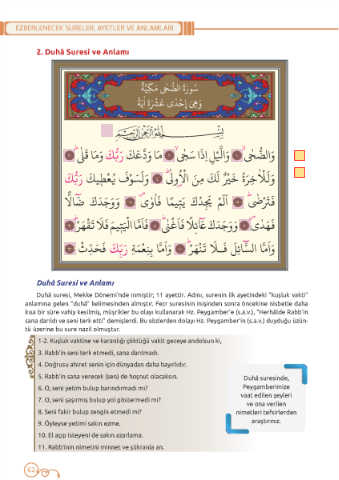 EZBERLENECEK SURELER, AYETLER VE ANLAMLARI
2. Duhâ Suresi ve Anlamı
سُورَةُ الضُّحٰى مَكِّيَّةٌ
وَهِيَ اِحْدٰى عَشْرَةَ اٰيَةً
بِسْمِ اللّٰهِ الرَّحْمٰنِ الرَّحِيمِ
وَالضُّحٰىۙ وَالَّيْلِ اِذَا سَجٰىۙ مَا وَدَّعَكَ رَبُّكَ وَمَا قَلٰىۜ
وَلَلْاٰخِرَةُ خَيْرٌ لَكَ مِنَ الْاُولٰىۜ وَلَسَوْفَ يُعْطِيكَ رَبُّكَ
فَتَرْضٰىۜ اَلَمْ يَجِدْكَ يَتِيمًا فَاٰوٰىۖ وَوَجَدَكَ ضَٓالًّا
فَهَدٰىۖ وَوَجَدَكَ عَٓائِلًا فَاَغْنٰىۜ فَاَمَّا الْيَتِيمَ فَلَا تَقْهَرْۜ
وَاَمَّا السَّٓائِلَ فَلَا تَنْهَرْۜ وَاَمَّا بِنِعْمَةِ رَبِّكَ فَحَدِّثْ
Duhâ Suresi ve Anlamı
Duhâ suresi, Mekke Dönemi'nde inmiştir; 11 ayettir. Adını, surenin ilk ayetindeki "kuşluk vakti"
anlamına gelen "duhâ" kelimesinden almıştır. Fecr suresinin inişinden sonra öncekine nisbetle daha
kısa bir süre vahiy kesilmiş, müşrikler bu olayı kullanarak Hz. Peygamber'e (s.a.v.), "Herhâlde Rabb'in
sana darıldı ve seni terk etti." demişlerdi. Bu sözlerden dolayı Hz. Peygamber'in (s.a.v.) duyduğu üzün-
tü üzerine bu sure nazil olmuştur.
1-2. Kuşluk vaktine ve karanlığı çöktüğü vakit geceye andolsun ki,
3. Rabb'in seni terk etmedi, sana darılmadı.
4. Doğrusu ahiret senin için dünyadan daha hayırlıdır.
5. Rabb'in sana verecek (sen) de hoşnut olacaksın.
6. O, seni yetim bulup barındırmadı mı?
7. O, seni şaşırmış bulup yol göstermedi mi?
8. Seni fakir bulup zengin etmedi mi?
9. Öyleyse yetimi sakın ezme.
10. El açıp isteyeni de sakın azarlama.
11. Rabb'inin nimetini minnet ve şükranla an.
Duhâ suresinde,
Peygamberimize
vaat edilen şeyleri
ve ona verilen
nimetleri tefsirlerden
araştırınız.